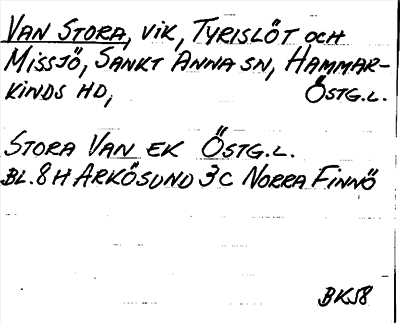 VAN STORA, VIK, TYRISLÖT OCH
MISSJÖ, SANKT ANNA SN, HAMMAR-
KINDS HD, ÖSTG.L.
STORA VAN EK ÖSTG.L.
BL. 8H ARKÖSUND 3C NORRA FINNÖ
BK58